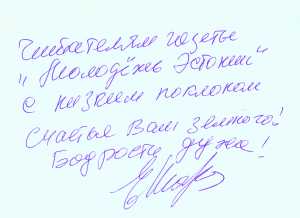 Читателям газеты
„Молодёжь Эстонии“
с низким поклоном
Счастья Вам земного!
Бодрости духа!